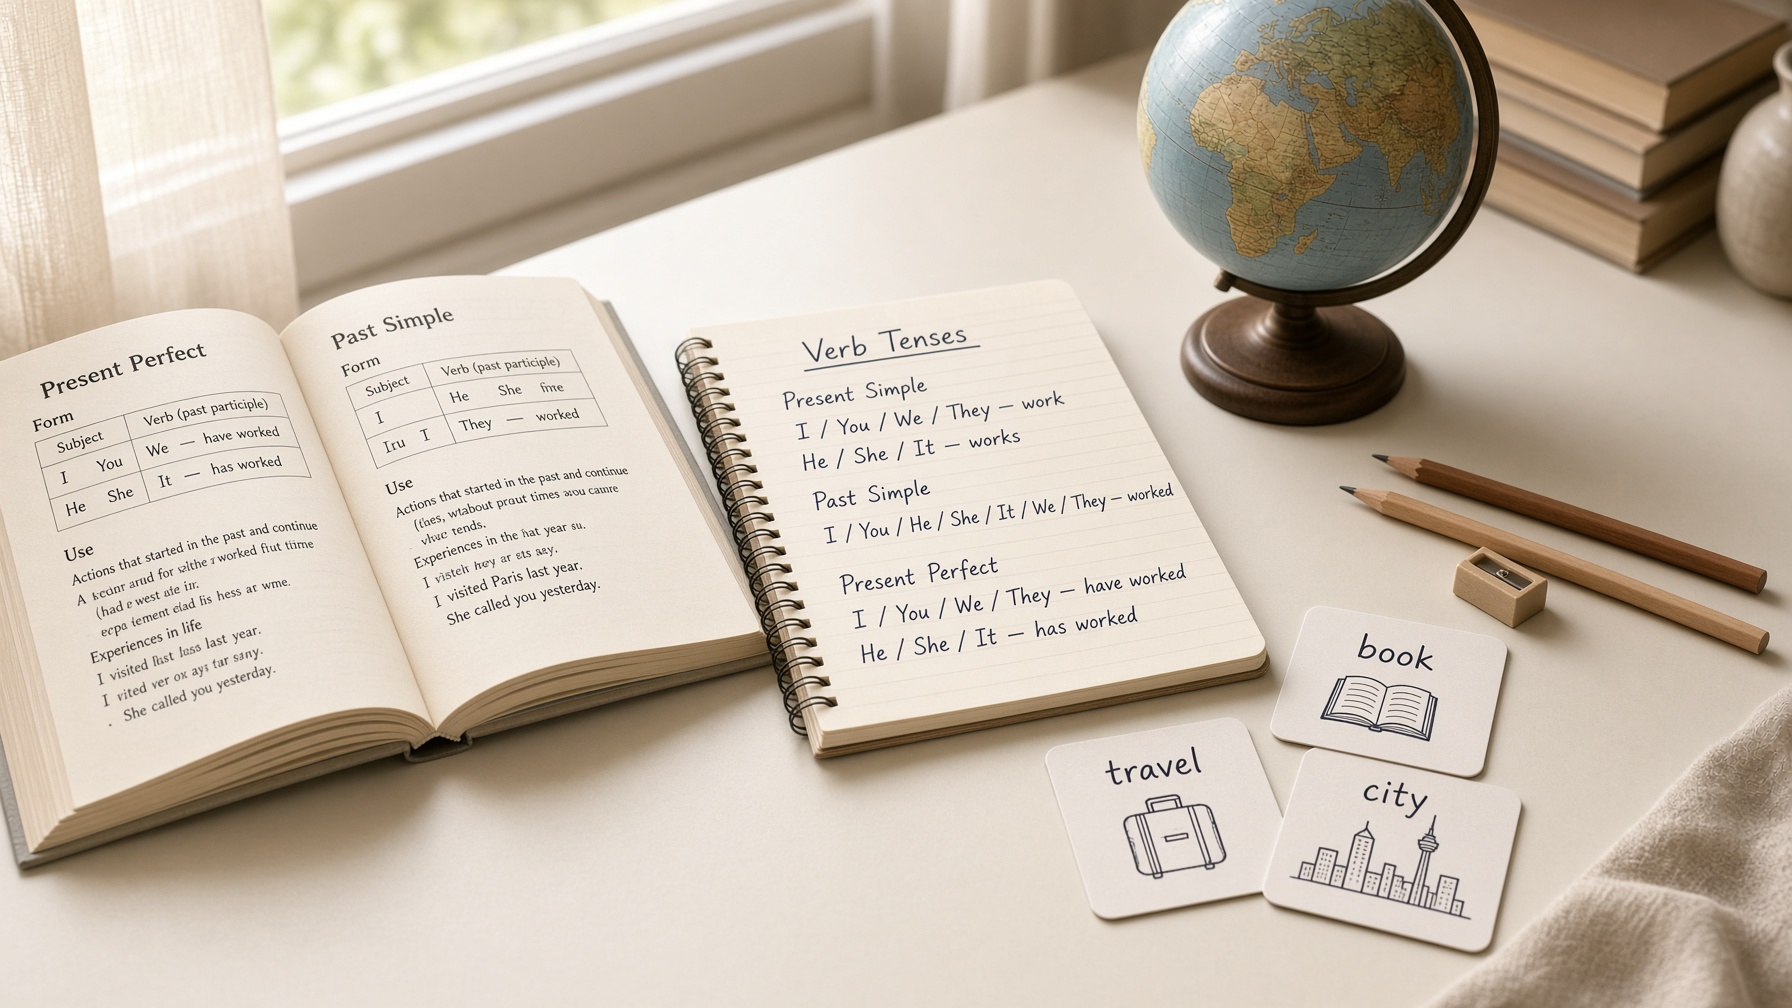 Present Perfect
Form
Subject Verb (past participle)
I You We — have worked
He She It — has worked
Use
Actions that started in the past and continue
A and for worked
(had west
Experiences in life
I visited last year.
I
She called you yesterday.
Past Simple
Form
Subject Verb (past participle)
I He She
I They — worked
Use
Actions that started in the past and continue
times
tends.
Experiences in the year
I
I visited Paris last year.
She called you yesterday.
Verb Tenses
Present Simple
I / You / We / They — work
He / She / It — works
Past Simple
I / You / He / She / It / We / They — worked
Present Perfect
I / You / We / They — have worked
He / She / It — has worked
book
travel
city